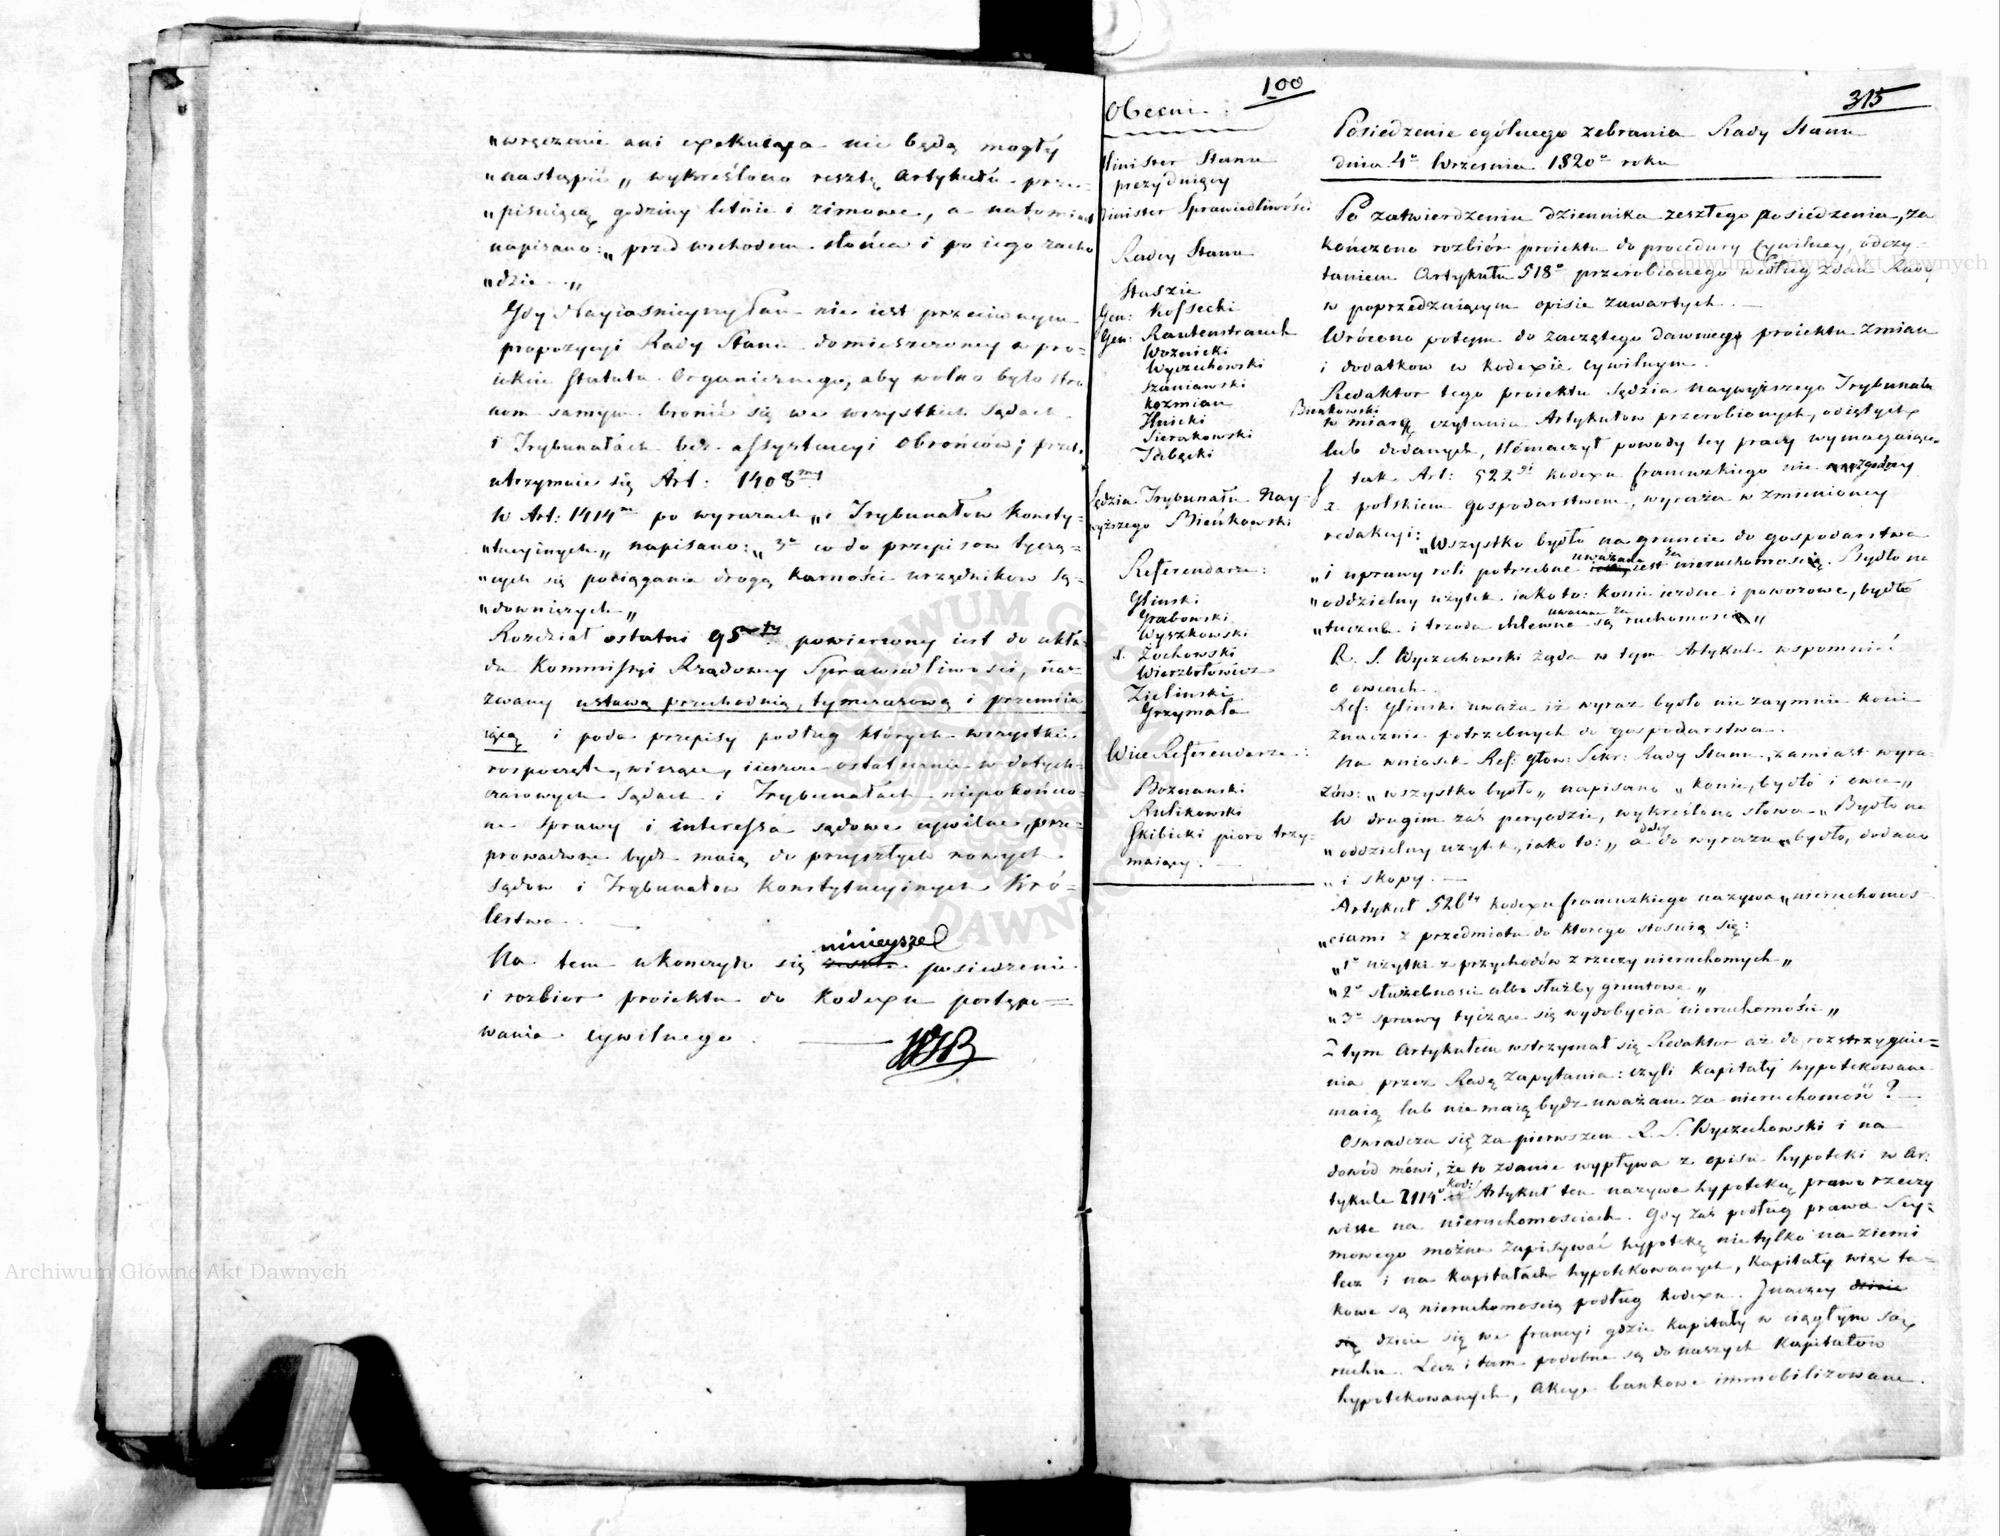 „wręczenie ani exekucya nie będą mogły
„nastąpić„ wykreślono resztę Artykułu prze-
„pisuiącą godziny letnie i zimowe, a natomiast
napisano: „przed wschodem słońca i po iego zacho
„dzie.„
Gdy Nayiaśnieyszy Pan nie iest przeciwnym
propozycyi Rady Stanu domieszczoney w pro=
iekcie Statutu Organicznego, aby wolno było stro
nom samym bronić się we wszystkich Sądach
i Trybunałach bez assystencyi Obrońców; przet.
utrzymuie się Art: 1408my
W Art: 1414m po wyrazach „i Trybunałów Konsty-
„tucyinych„ napisano: „3o co do przepisow tyczą=
„cych się pociągania drogą karności urzędnikow Są-
„downiczych„
Rozdział ostatni 95ty powierzony iest do ukła-
du Kommissyi Rządowey Sprawiedliwości, na-
zwany ustawą przechodnią, tymczasową i przemiia
iącą i poda przepisy podług których wszystkie
rospoczęte, wiszące, ieszcze ostatecznie w dotych-
czasowych Sądach i Trybunałach niepokończo-
ne Sprawy i interessa sądowe cywilne, prze-
prowadzone bydź maią do przyszłych nowych
Sądow i Trybunałow Konstytucyinych Kró-
lestwa.
ninieysze
Na tem ukonczyło się zeszłe posiedzenie
i rozbior proiektu do Kodexu postępo=
wania cywilnego.
100
Obecni:
Minister Stanu
prezyduiący
Minister Sprawiedliwości
Radcy Stanu
Staszic
Gen: Kossecki
Gen: Rautenstrauch
Woznicki
Wyczechowski
Szaniawski
Koźmian
Hnicki
Sierakowski
Tabęcki
Sędzia Trybunału Nay-
wyższego Bieńkowski
Referendarze:
Gliński
Grabowski
Wyszkowski
X. Żochowski
Wierzbołowicz
Zieliński
Grzymała
Wice Referendarze:
Boznanski
Rulikowski
Skibicki pioro trzy-
maiący.
315
Posiedzenie ogólnego zebrania Rady Stanu
dnia 4o Września 1820o roku
Po zatwierdzeniu dziennika zeszłego posiedzenia, za
kończono rozbiór proiektu do procedury Cywilney, odczy-
taniem Artykułu 518o przerobionego według zdań Rady
w poprzedzaiącym opisie zawartych.
Wrócono potym do zaczętego dawnego proiektu zmian
i dodatkow w Kodexie cywilnym.
Redaktor tego proiektu Sędzia naywyższego Trybunału
Bienkowski
w miarę czytania Artykułow przerobionych, odiętych
lub dodanych, tłómaczył powody tey pracy wymagaiące.
I tak Art: 522gi Kodexu francuzkiego nie zgodny
z polskiem gospodarstwem, wyraża w zmienioney
redakcyi: „Wszystko bydło na gruncie do gospodarstwa
uważane za
„i uprawy roli potrzebne iest nieruchomością. Bydło na
„oddzielny użytek iako to: konie iezdne i powozowe, bydło
uważane za
„tuczne i trzoda chlewna są ruchomości„
R. S. Wyczechowski żąda w tym Artykule wspomnieć
o owcach.
Ref: Gliński uważa iż wyraz bydło nie zaymuie koni
znacznie potrzebnych do gospodarstwa.
Na wniosek Ref: głow: Sekr: Rady Stanu, zamiast wyra-
zów: „wszystko bydło„ napisano „konie, bydło i owce„
W drugim zaś peryodzie, wykreślono słowa „Bydło na
daley
„oddzielny użytek, iako to:„ a do wyrazu „bydło, dodano
„i skopy.
Artykuł 526ty Kodexu francuzkiego nazywa „nieruchomoś-
„ciami z przedmiotu do ktorego stosuią się:
„1o użytki z przychodów z rzeczy nieruchomych„
„2o służebności albo służby gruntowe„
„3o sprawy tyczące się wydobycia nieruchomości„
Z tym Artykułem wstrzymał się Redaktor aż do rozstrzygnie=
nia przez Radę zapytania: czyli kapitały hypotekowane
maią lub nie maią bydź uważane za nieruchomość?
Oświadcza się za pierwszem R. S. Wyczechowski i na
dowód mówi, że to zdanie wypływa z opisu hypoteki w Ar:
Kod:
tykule 2114o Artykuł ten nazywa hypoteką prawo rzeczy
wiste na nieruchomosciach. Gdy zaś podług prawa Sey=
mowego można zapisywać hypotekę nie tylko na ziemi
lecz i na kapitałach hypotekowanych, Kapitały więc ta-
kowe są nieruchomością podług Kodexu. Inaczey dzieie
się dzieie się we francyi gdzie kapitały w ciągłym są
ruchu. Lecz i tam podobne są do naszych Kapitałów
hypotekowanych, Akcye bankowe immobilizowane.
Archiwum Główne Akt Dawnych
Archiwum Główne Akt Dawnych